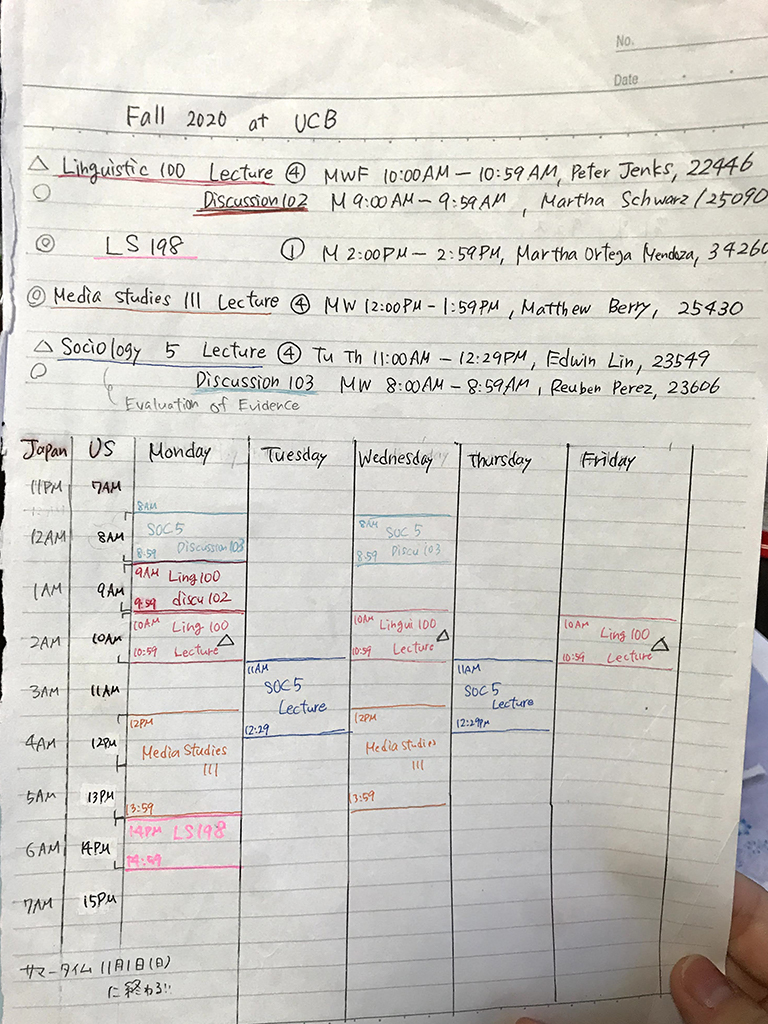 No.
Date
Fall 2020 at UCB
△ Linguistic 100 Lecture ④ MWF 10:00AM – 10:59AM, Peter Jenks, 22446
○ Discussion 102 M 9:00AM – 9:59AM, Martha Schwarz / 25090
◎ LS 198 ① M 2:00PM – 2:59PM, Martha Ortega Mendoza, 34260
◎ Media studies 111 Lecture ④ MW 12:00PM – 1:59PM, Matthew Berry, 25430
△ Sociology 5 Lecture ④ Tu Th 11:00AM – 12:29PM, Edwin Lin, 23549
○ Discussion 103 MW 8:00AM – 8:59AM, Reuben Perez, 23606
Evaluation of Evidence
Japan US Monday Tuesday Wednesday Thursday Friday
11PM 7AM
8AM 8AM
12AM 8AM SOC 5 SOC 5
8:59 Discussion 103 8:59 Discu 103
9AM Ling 100
1AM 9AM
9:59 discu 102
10AM Ling 100 10AM Lingui 100 10AM Ling 100
2AM 10AM △ △ △
10:59 Lecture 10:59 Lecture 10:59 Lecture
11AM 11AM
3AM 11AM SOC 5 SOC 5
Lecture Lecture
12PM 12:29 12PM 12:29PM
4AM 12PM Media Studies Media Studies
111 111
5AM 13PM
13:59 13:59
6AM 14PM 14PM LS198
14:59
7AM 15PM
サマータイム 11月1日(日)
に終わる!!